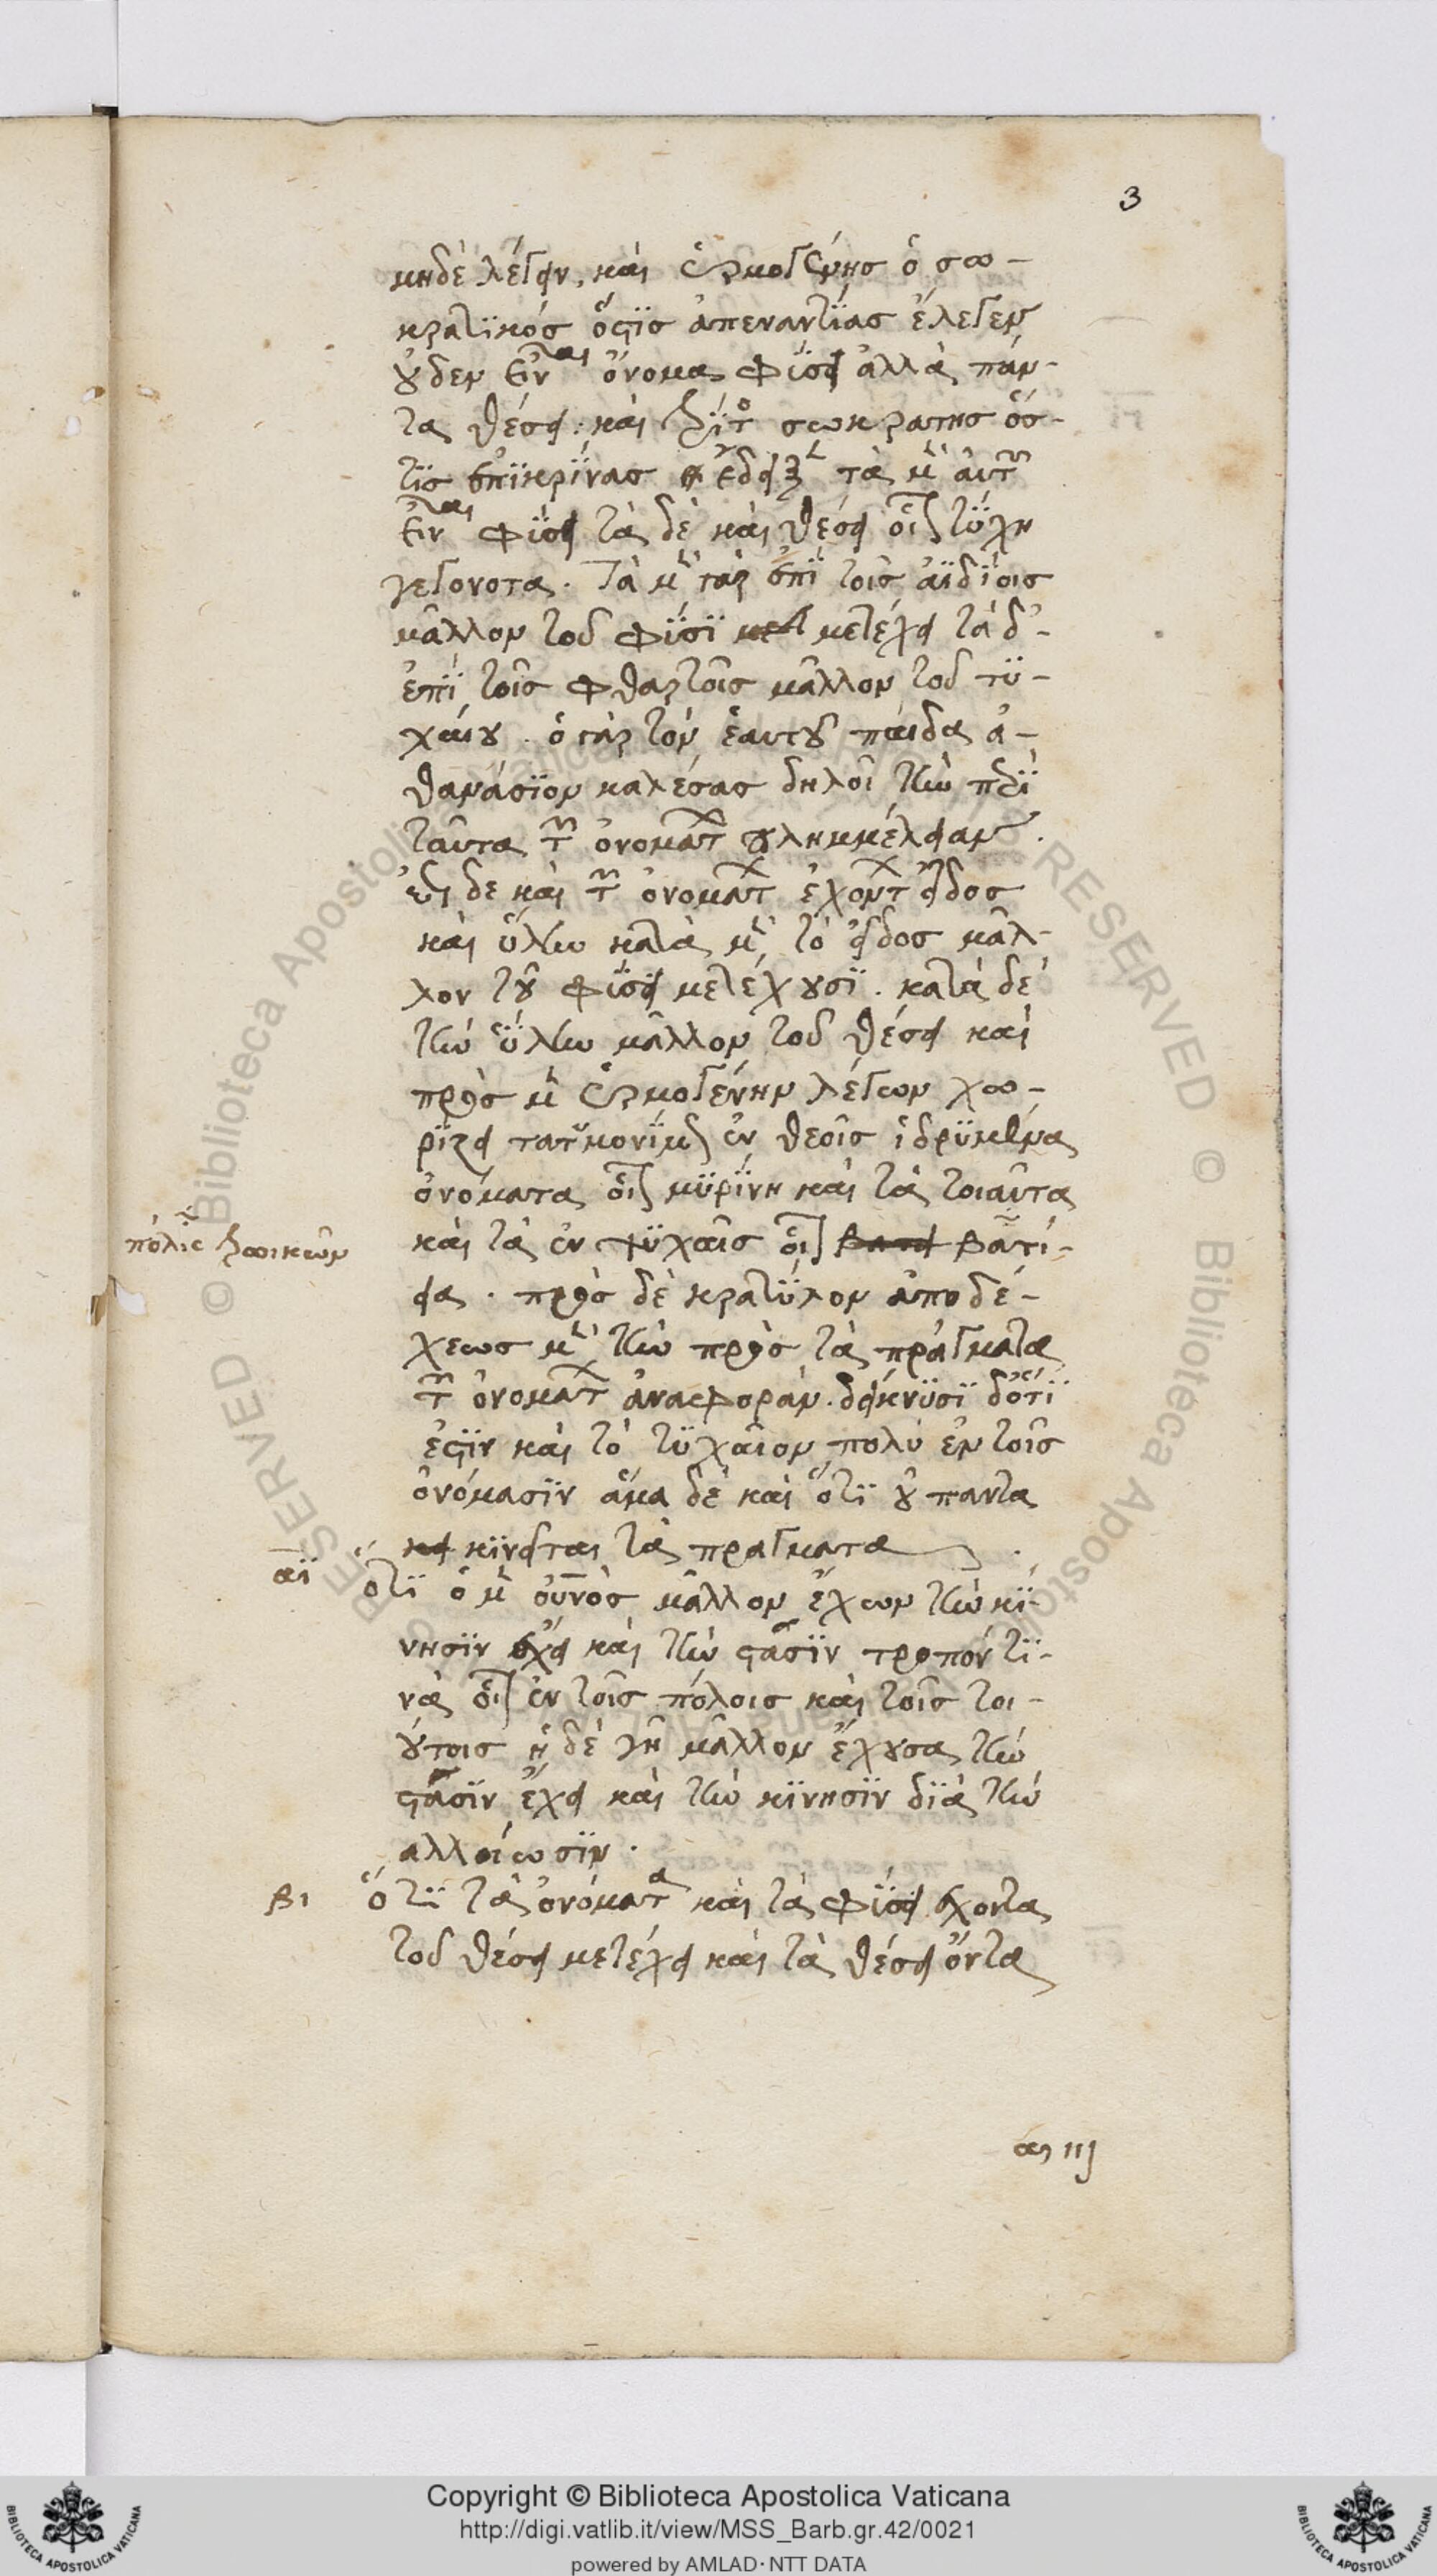 3
μηδὲ λέγειν, καὶ ἑρμογένησ ὁ σω-
κρατϊκόσ ὅςϊσ ἀπεναντίασ ἔλεγεν
ȣδεν εἶναι ὄνομα φύσει ἀλλὰ πάν-
τα θέσει· καὶ τρίτο σωκρατησ ὅσ-
τϊσ ἐπϊκρίνασ ἔδειξε τὰ μὲν αὐτῶν
εἶναι φύσει τὰ δὲ καὶ θέσει οἷον τύχη
γεγονοτα. Τὰ μὲν γὰρ ἐπϊ τοῖσ ἀϊδίοισ
μᾶλλον τοῦ φύσϊ μετέχει τὰ δ'-
ἐπϊ τοῖσ φθαρτοῖσ μᾶλλον τοῦ τϋ-
χαίȣ. ὁ γὰρ τὸν ἑαυτȣ παῖδα ἀ-
θανάσϊον καλέσασ δηλοῖ τὴν περὶ
ταῦτα τῶν ὀνομάτων πλημμέλειαν.
ἔτι δε καὶ τῶν ὀνομάτων ἐχόντων εἶδοσ
καὶ ὕλην κατὰ μὲν τὸ εἶδοσ μᾶλ-
λον τȣ φύσει μετέχȣσϊ. κατὰ δὲ
τὴν ὕλην μᾶλλον τοῦ θέσει καὶ
πρὸσ μὲν ἑρμογένην λέγων χω-
ρίζει τα τῶν μονίμως ἐν θεοῖσ ἱδρϋμένα
ὀνόματα οἷον μϋρίνη καὶ τὰ τοιαῦτα
πόλις τρωικῶν
καὶ τὰ ἐν ψϋχαῖσ οἷον βατί-
εια. πρὸσ δὲ κρατύλον ἀποδέ-
χεωσ μὲν τὴν πρὸσ τὰ πράγματα
τῶν ὀνομάτων ἀναφοράν. δείκνϋσϊ δὅτϊ
ἐςϊν καὶ τὸ τϋχαῖον πολὺ ἐν τοῖσ
ὀνόμασϊν ἅμα δὲ καὶ ὅτϊ ȣ παντα
κϊνεῖται τὰ πραγματα
αϊ ὅτϊ ὁ μὲν οὐνὸσ μᾶλλον ἔχων τὴν κί-
νησϊν ἔχει καὶ τὴν ςάσϊν τροπόν τϊ-
νὰ οἷον ἐν τοῖσ πόλοισ καὶ τοῖσ τοι-
ȣτοισ ἡ δὲ γῆ μᾶλλον ἔχȣσα τὴν
ςάσϊν ἔχει καὶ τὴν κϊνησϊν δϊὰ τὴν
αλλοίωσϊν.
βι ὅτϊ τὰ ὀνόματα καὶ τὰ φύσει ἔχοντα
τοῦ θέσει μετέχει καὶ τὰ θέσει ὄντα
α iij
Copyright © Biblioteca Apostolica Vaticana
http://digi.vatlib.it/view/MSS_Barb.gr.42/0021
powered by AMLAD·NTT DATA